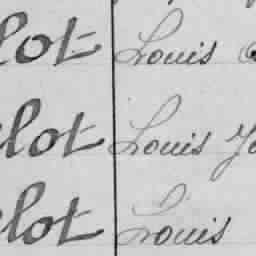 lot Louis
lot Louis
lot Louis